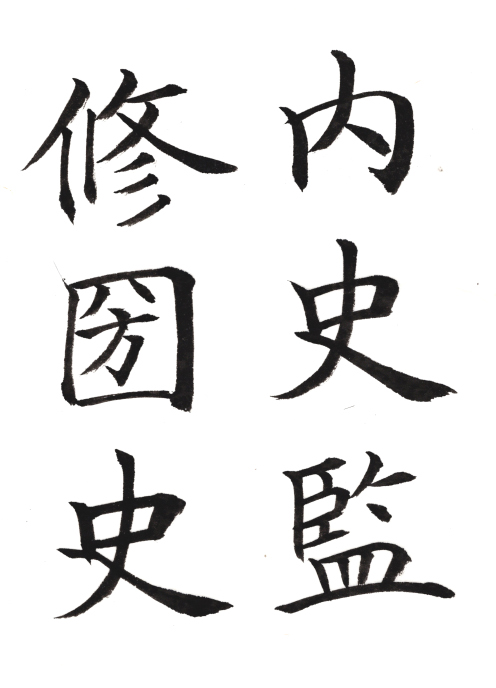 内史監
修圀史